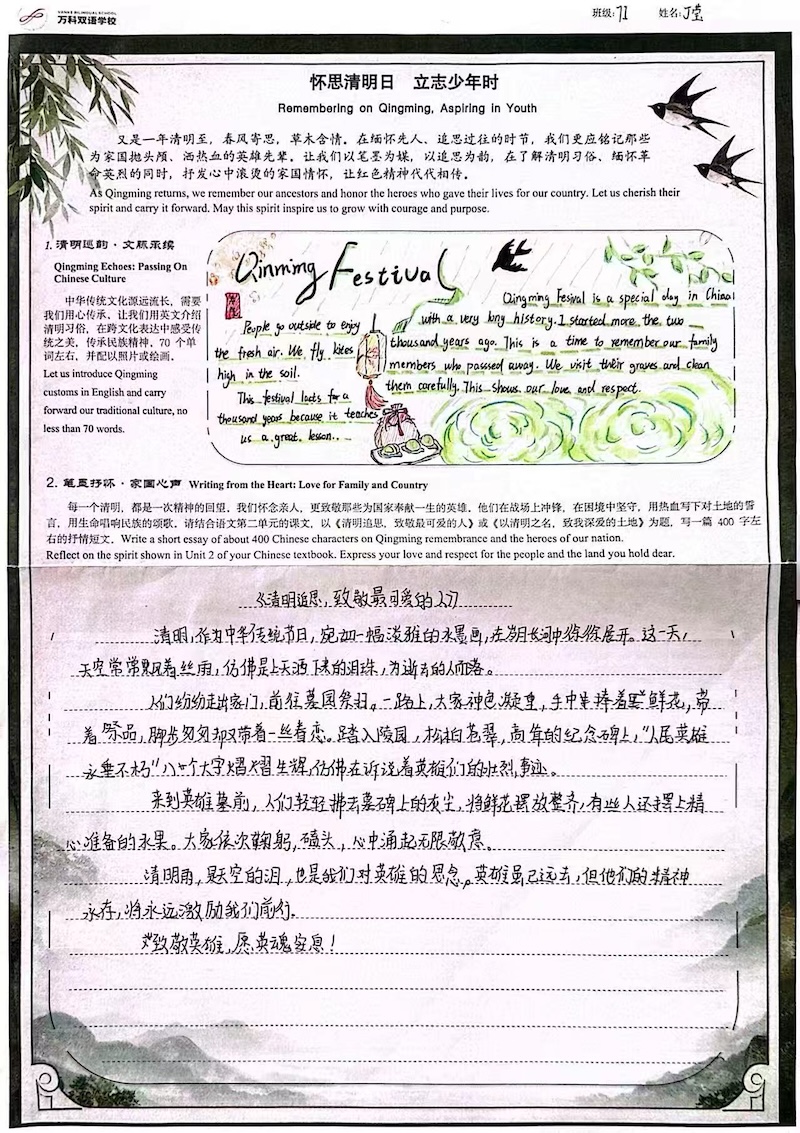 VANKE BILINGUAL SCHOOL
万科双语学校
班级: 71 姓名:
怀思清明日 立志少年时
Remembering on Qingming, Aspiring in Youth
又是一年清明至，春风寄思，草木含情。在缅怀先人、追思过往的时节，我们更应铭记那些
为家国抛头颅、洒热血的英雄先辈。让我们以笔墨为媒，以追思为韵，在了解清明习俗、缅怀革
命英烈的同时，抒发心中滚烫的家国情怀，让红色精神代代相传。
As Qingming returns, we remember our ancestors and honor the heroes who gave their lives for our country. Let us cherish their
spirit and carry it forward. May this spirit inspire us to grow with courage and purpose.
1. 清明遗韵·文脉承续
Qingming Echoes: Passing On
Chinese Culture
中华传统文化源远流长，需要
我们用心传承。让我们用英文介绍
清明习俗，在跨文化表达中感受传
统之美，传承民族精神。70 个单
词左右，并配以照片或绘画。
Let us introduce Qingming
customs in English and carry
forward our traditional culture, no
less than 70 words.
Qinming Festival
Qingming Fesival is a special day in China
with a very long history. I started more the two
thousand years ago. This is a time to remember our family
members who passsed away. We visit their graves and clean
them carefully. This shows our love and respect.
People go outside to enjoy
the fresh air. We fly kites
high in the soil.
This festival lasts for a
thousand years because it teaches
us a great lesson...
2. 笔墨抒怀·家国心声 Writing from the Heart: Love for Family and Country
每一个清明，都是一次精神的回望。我们怀念亲人，更致敬那些为国家奉献一生的英雄。他们在战场上冲锋，在困境中坚守，用热血写下对土地的誓
言，用生命唱响民族的颂歌。请结合语文第二单元的课文，以《清明追思，致敬最可爱的人》或《以清明之名，致我深爱的土地》为题，写一篇 400 字左
右的抒情短文。Write a short essay of about 400 Chinese characters on Qingming remembrance and the heroes of our nation.
Reflect on the spirit shown in Unit 2 of your Chinese textbook. Express your love and respect for the people and the land you hold dear.
《清明追思，致敬最可爱的人》
清明，作为中华传统节日，宛如一幅淡雅的水墨画，在岁月长河中徐徐展开。这一天，
天空常常飘着丝雨，仿佛是上天洒下来的泪珠，为逝去的人而落。
人们纷纷走出家门，前往墓园祭扫。一路上，大家神色凝重，手中捧着鲜花，带
着祭品，脚步匆匆却又带着一丝眷恋。踏入陵园，松柏苍翠，高耸的纪念碑上，“人民英雄
永垂不朽”八个大字熠熠生辉，仿佛在诉说着英雄们的壮烈事迹。
来到英雄墓前，人们轻轻拂去墓碑上的灰尘，将鲜花摆放整齐，有些人还摆上精
心准备的水果。大家依次鞠躬，磕头，心中涌起无限敬意。
清明雨，是天空的泪，也是我们对英雄的思念。英雄虽已远去，但他们的精神
永存，将永远激励我们前行。
致敬英雄，愿英魂安息！